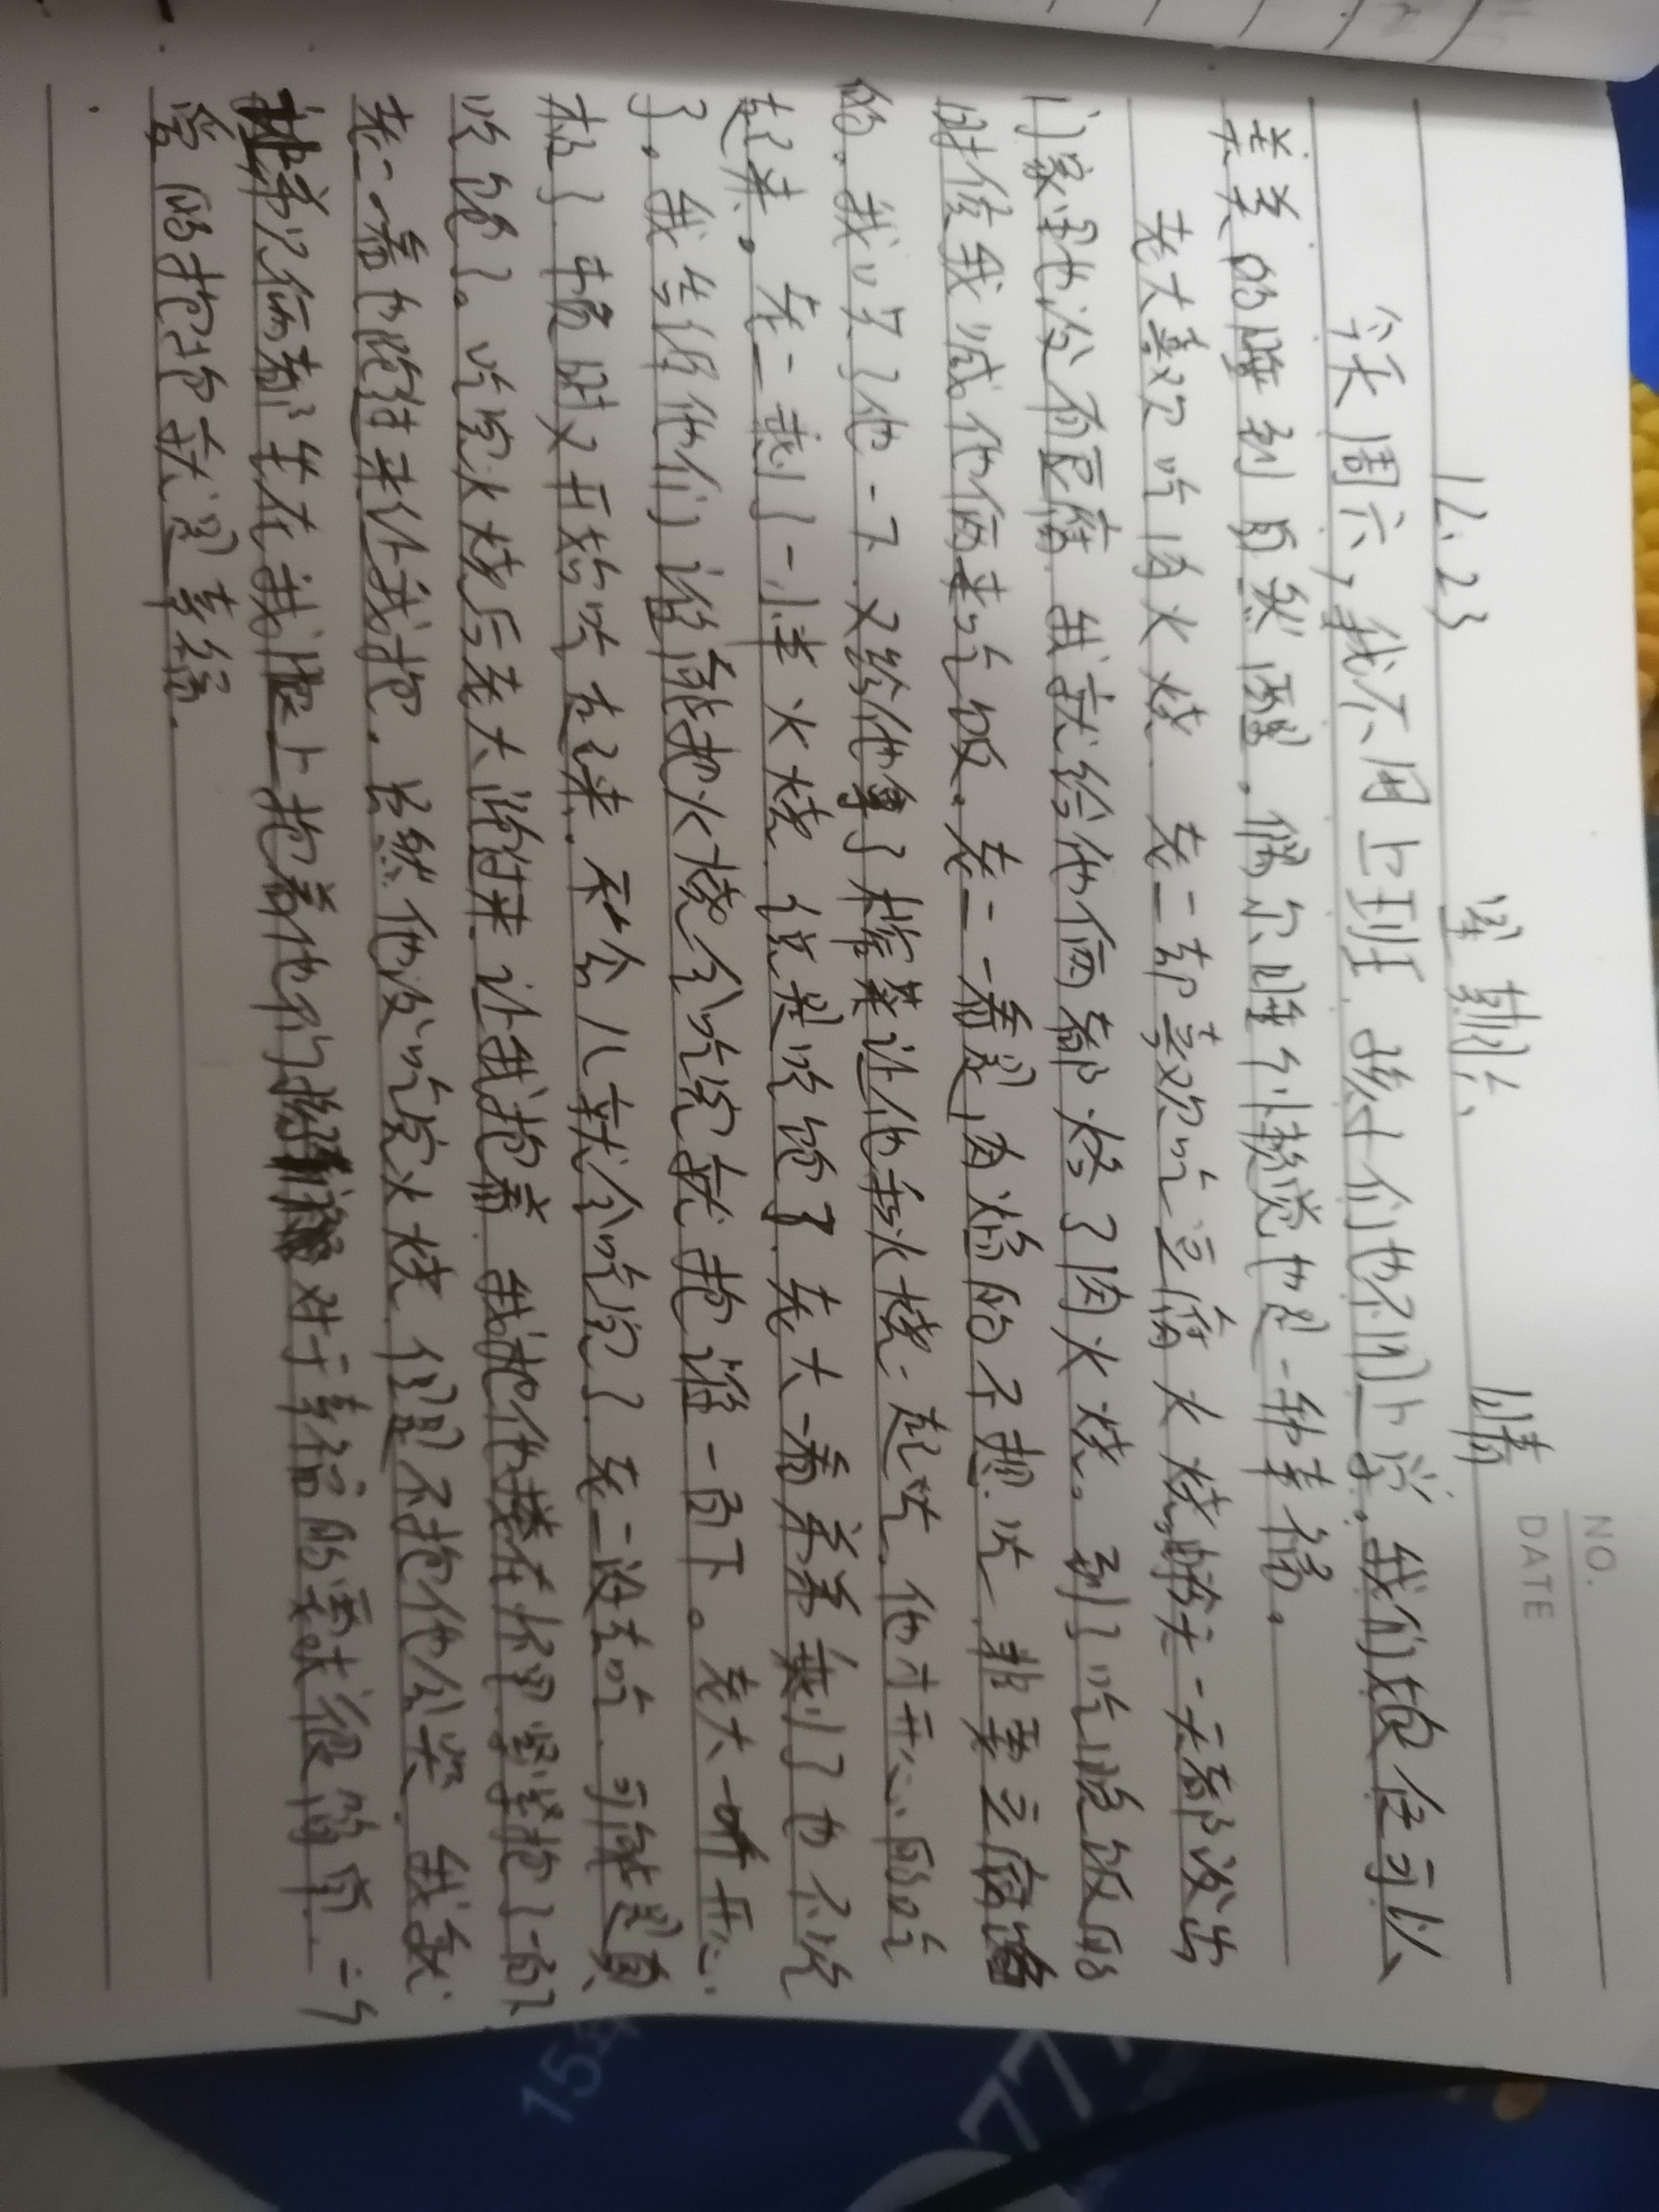 NO.
DATE
12.23 星期六 晴
今天周六，我不用上班，孩子们也不用上学。我们娘仨可以
美美的睡到自然醒。偶尔睡个懒觉也是一种幸福。
老大喜欢吃肉火烧，老二却喜欢吃豆腐火烧，昨天一天都没出
门，家里也没有豆腐，我就给他俩都烙了肉火烧。到了吃晚饭的
时候我喊他俩来吃饭。老二一看是肉馅的不想吃，非要豆腐
的。我吵了他一下，又给他拿了榨菜让他和火烧一起吃，他才开心的吃
起来。老二剩了一小半火烧，说是吃饱了，老大一看弟弟剩了也不吃
了。我告诉他们谁能把火烧全吃完就抱谁一百下。老大一听开心
极了，顿时又开始吃起来，不会儿就全吃完了，老二没去吃，可能是真
吃饱了。吃完火烧后老大跑过来让我抱着，我把他搂在怀里紧紧抱了一百下
老二一看也跑过来让我抱。虽然他没吃完火烧，但是不抱他会哭，我就
让弟兄俩都坐在我腿上抱着他们，对于幸福的要求很简单，一个
的抱抱就是幸福。
154
777